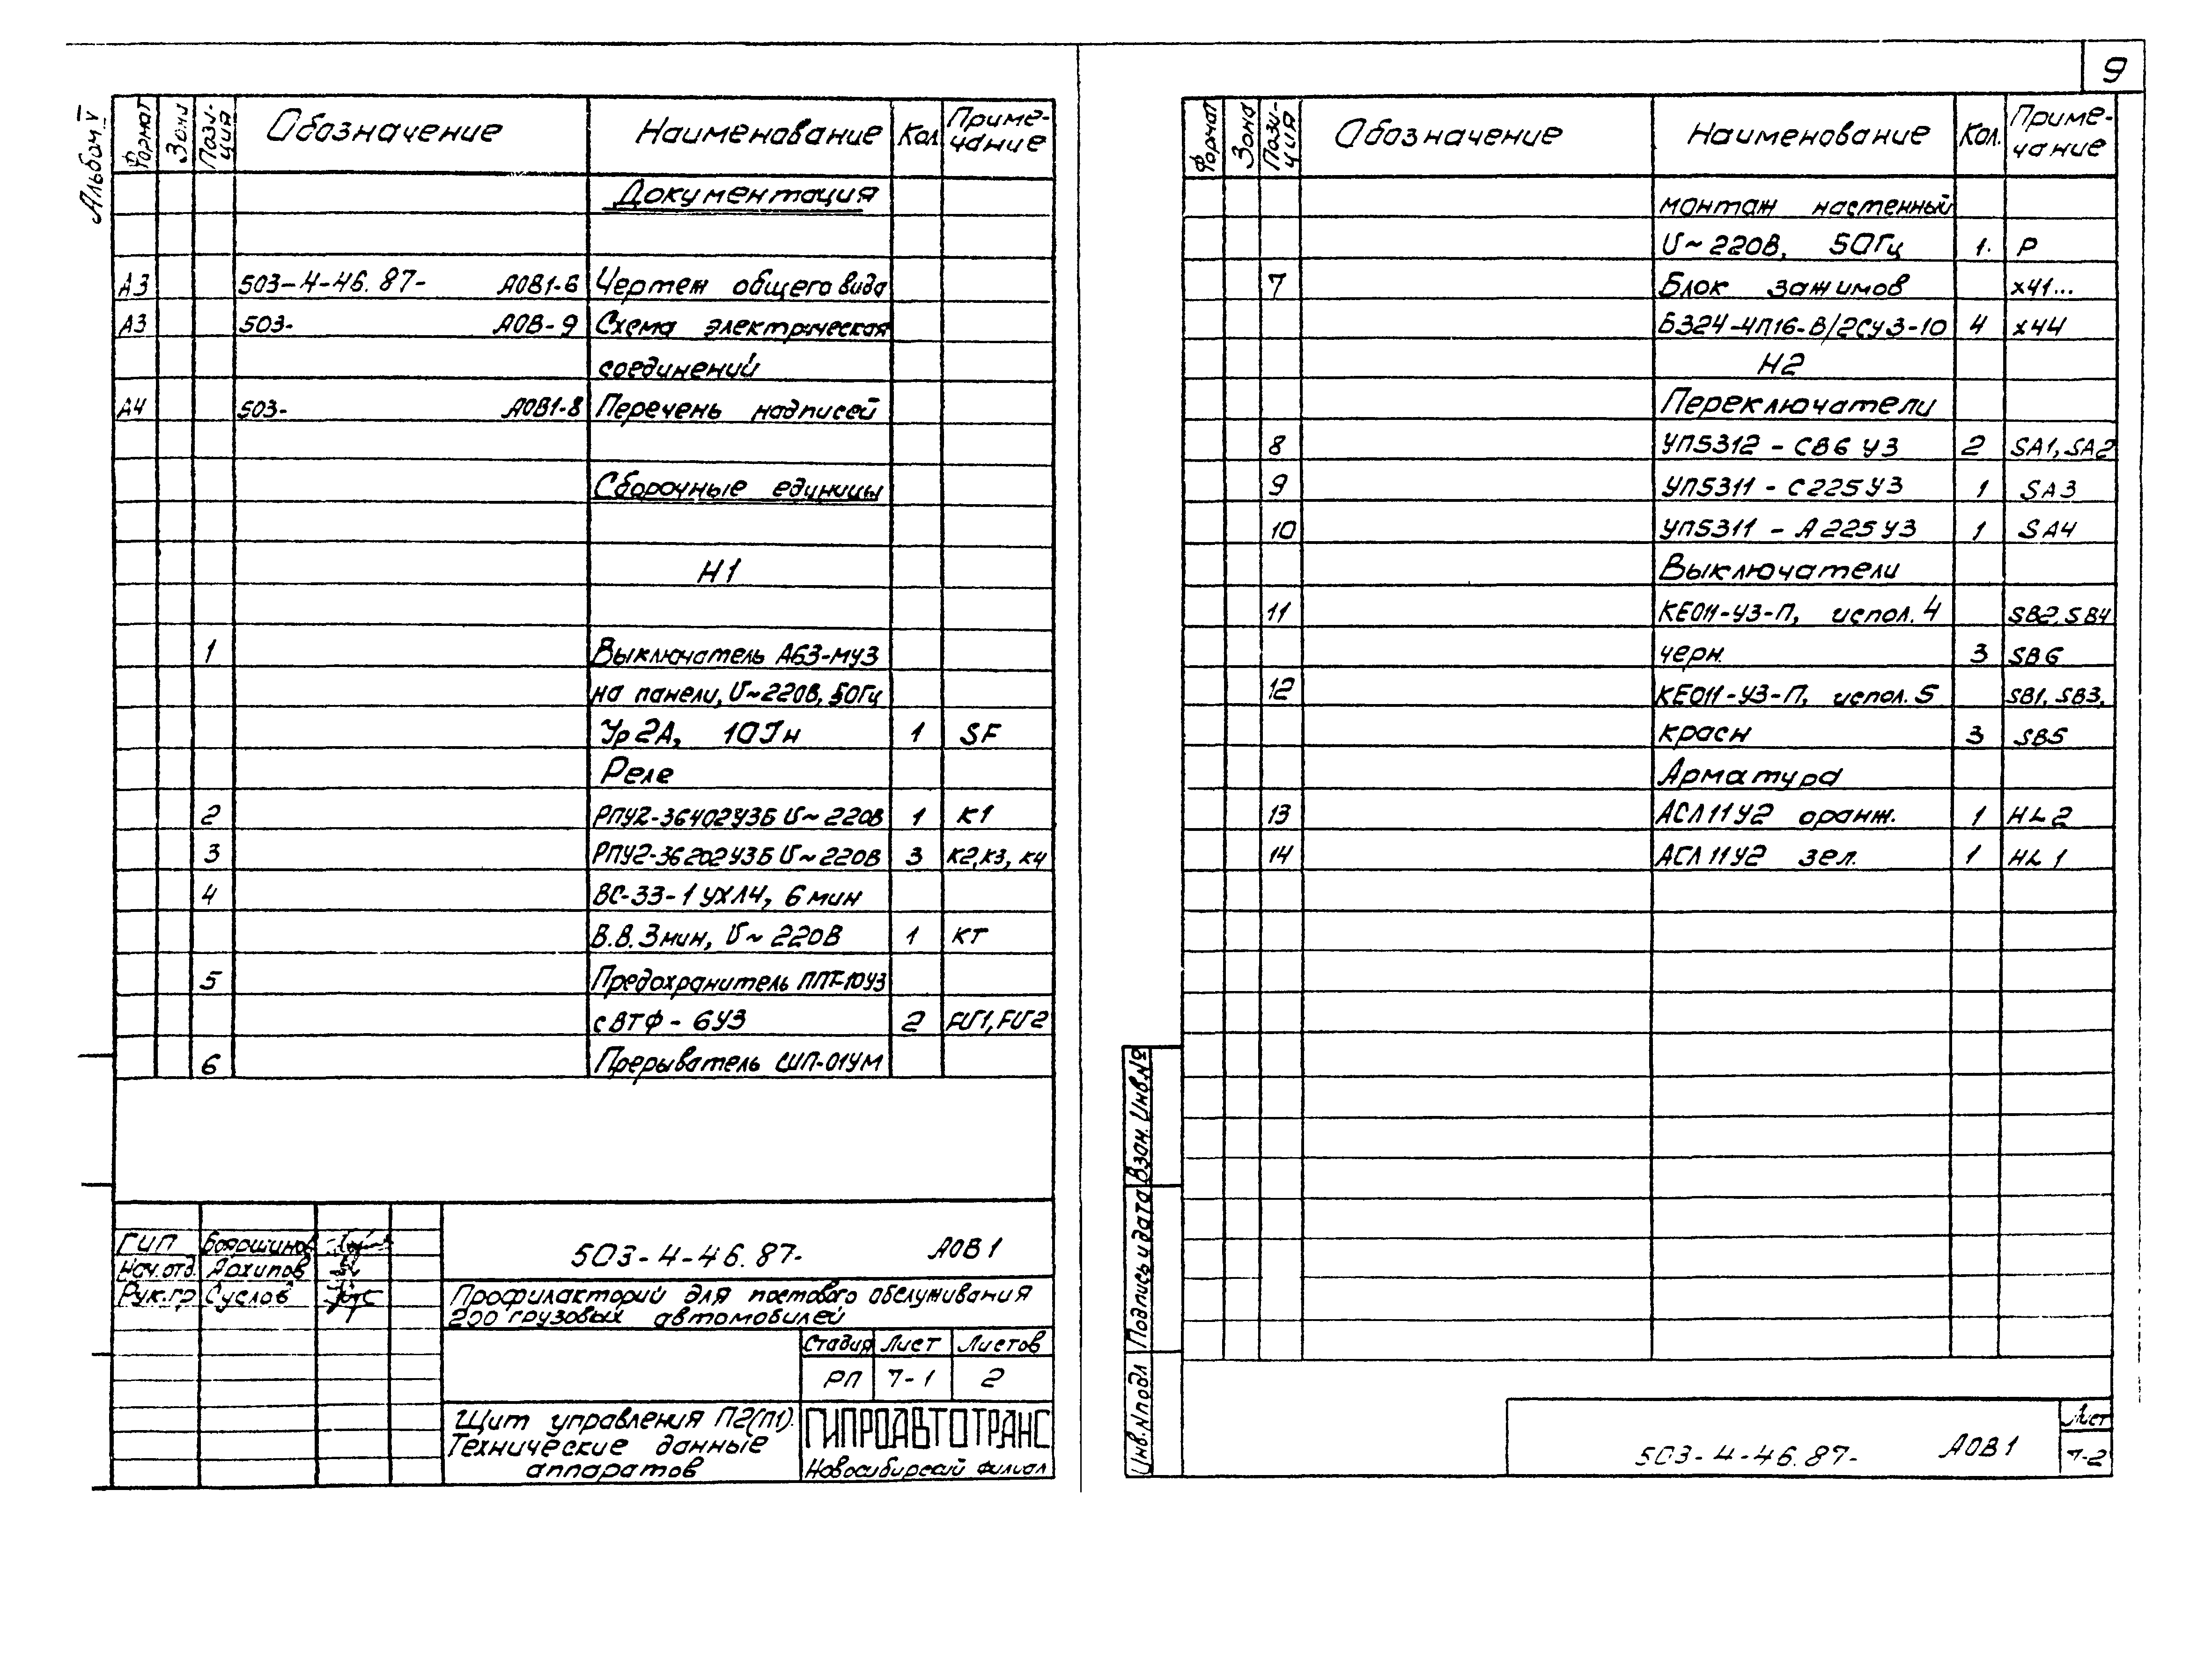 9
Альбом V
Формат Зона Пози-ция Обозначение Наименование Кол. Приме-чание
Документация
А3 503-4-46.87- АОВ1-6 Чертеж общего вида
А3 503- АОВ-9 Схема электрическая
соединений
А4 503- АОВ1-8 Перечень надписей
Сборочные единицы
Н1
1 Выключатель А63-МУ3
на панели, U~220В, 50Гц
Ур 2А, 10Jн 1 SF
Реле
2 РПУ2-36402У3Б U~220В 1 К1
3 РПУ2-36202У3Б U~220В 3 К2,К3, К4
4 ВС-33-1 УХЛ4, 6 мин
В.В. 3мин, U~220В 1 КТ
5 Предохранитель ППТ-10У3
с ВТФ-6У3 2 FU1, FU2
6 Прерыватель СИП-01УМ
ГИП Бояршинов
Нач.отд. Архипов
Рук.гр Суслов
503-4-46.87- АОВ1
Профилакторий для постового обслуживания
200 грузовых автомобилей
Стадия Лист Листов
РП 7-1 2
Щит управления П2(П1).
Технические данные
аппаратов
ГИПРОАВТОТРАНС
Новосибирский филиал
Формат Зона Пози-ция Обозначение Наименование Кол. Приме-чание
монтаж настенный
U~220В, 50Гц 1. Р
7 Блок зажимов х41...
Б324-4П16-В/2СУ3-10 4 х44
Н2
Переключатели
8 УП5312-С86 У3 2 SA1, SA2
9 УП5311-С225У3 1 SA3
10 УП5311-А225У3 1 SA4
Выключатели
11 КЕ011-У3-П, испол. 4 SB2, SB4
черн. 3 SB6
12 КЕ011-У3-П, испол. 5 SB1, SB3,
красн 3 SB5
Арматура
13 АСЛ11У2 оранж. 1 HL2
14 АСЛ11У2 зел. 1 HL1
Взам. Инв.№
Подпись и дата
Инв.№подл
503-4-46.87- АОВ1
Лист
7-2